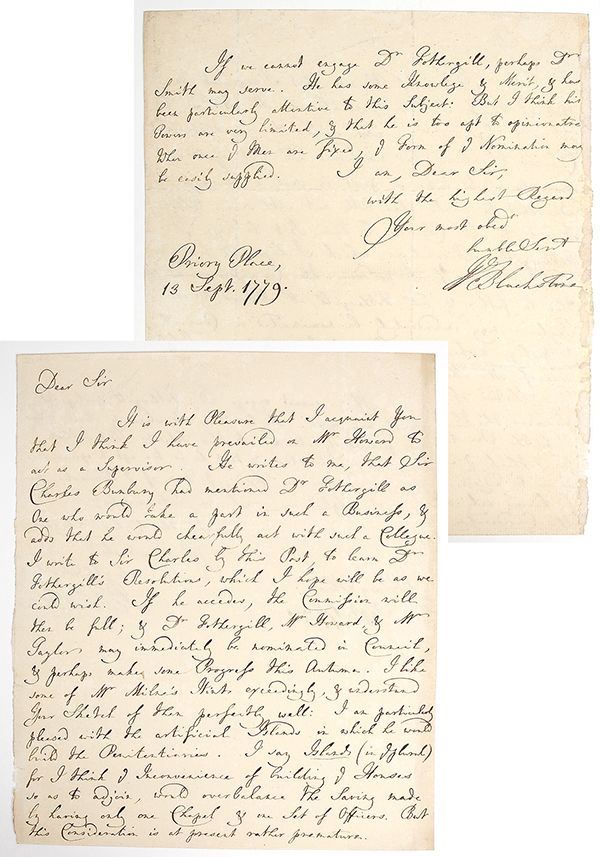 Dear Sir
It is with Pleasure that I acquaint You
that I think I have prevailed on Mr Howard to
act as a Supervisor. He writes to me, that Sir
Charles Bunbury had mentioned Dr Fothergill as
One who would take a part in such a Business, &
adds that he would chearfully act with such a Collegue.
I write to Sir Charles by this Post to learn Dr
Fothergill's Resolutions, which I hope will be as we
could wish. If he accedes, the Commission will
then be full; & Dr Fothergill, Mr Howard, & Mr
Taylor may immediately be nominated in Council,
& perhaps make some Progress this Autumn. I like
some of Mr Milne's Hints exceedingly, & understand
Your Sketch of them perfectly well: I am particularly
pleased with the artificial Islands in which he would
build the Penitentiaries. I say Islands (in ye plural)
for I think ye Inconvenience of building ye Houses
so as to adjoin, would overbalance the Saving made
by having only one Chapel & one Set of Officers. But
this Consideration is at present rather premature.
If we cannot engage Dr Fothergill, perhaps Dr
Smith may serve. He has some Knowlege & Merit, & has
been particularly attentive to this Subject: But I think his
Powers are very limited, & that he is too apt to opinionatre
When once ye Men are fixed, ye Form of ye Nomination may
be easily supplied. I am, Dear Sir,
with the highest Regard
Your most obedt
humble Servt
Wm Blackstone
Priory Place,
13 Sept. 1779.